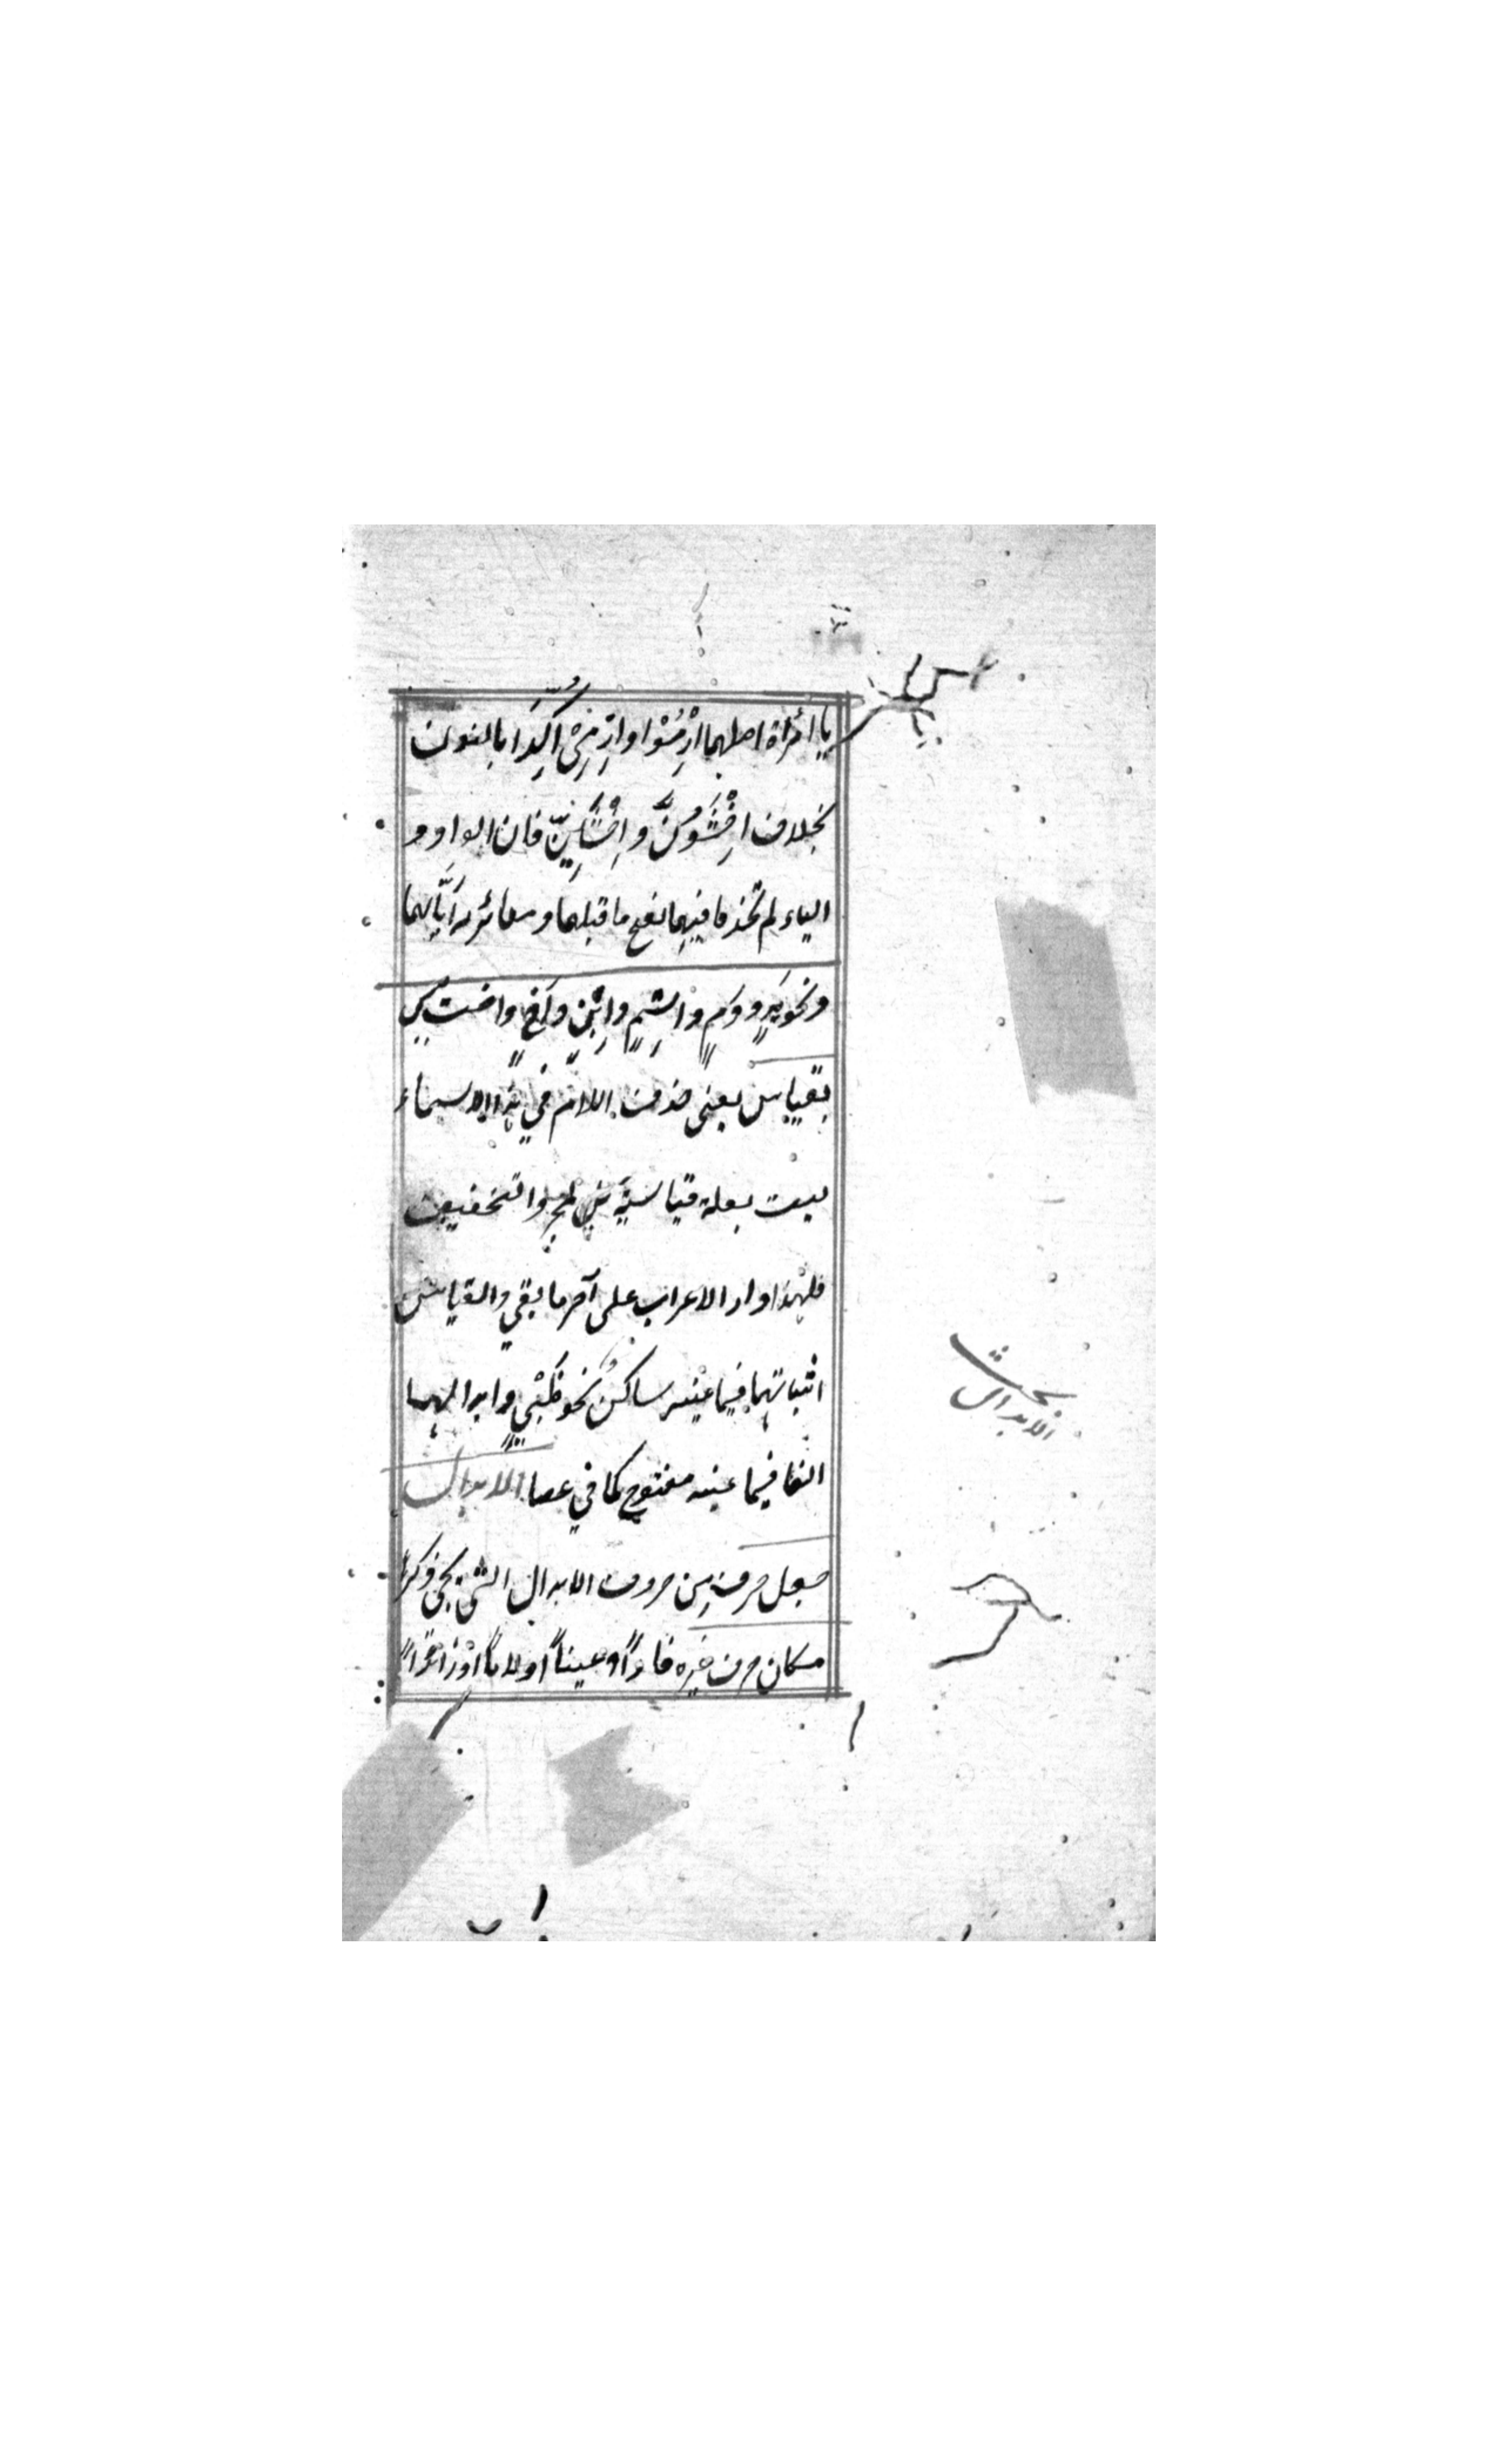 يا امرأة اصلهما ارْمُوْا وارْمِىْ اُكِّدا بالنون
بخلاف اخْشَوُنَّ واخْشَيِنَّ فان الواو و
الياء لم تحذفا فيهما لفتح ما قبلهما ومغائرة آياهما
ونحو يدٍ ودمٍ واسمٍ وابنٍ واخٍ واخت ليس
بقياس يعنى حذف اللام في هذا الاسماء
ليست بعلة قياسية بل لمجرد التخفيف
فلهذا دار الاعراب على آخر ما بقي والقياس
اثباتهما فيما عينه ساكن نحو ظَبْيٍ وابدالهما
الفا فيما عينه مفتوح كما في عصا الابدال
جعل حرف من حروف الابدال التى يجئ ذكرها
مكان حرف غيره فاءً او عيناً او لاماً او زائداً
بحث
الابدال